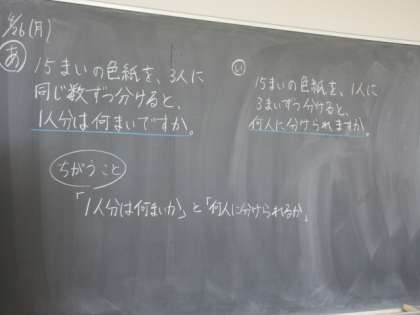 6/26(月)
あ
15まいの色紙を、3人に
同じ数ずつ分けると、
1人分は何まいですか。
い
15まいの色紙を、1人に
3まいずつ分けると、
何人に分けられますか。
ちがうこと
「1人分は何まいか」と「何人に分けられるか」